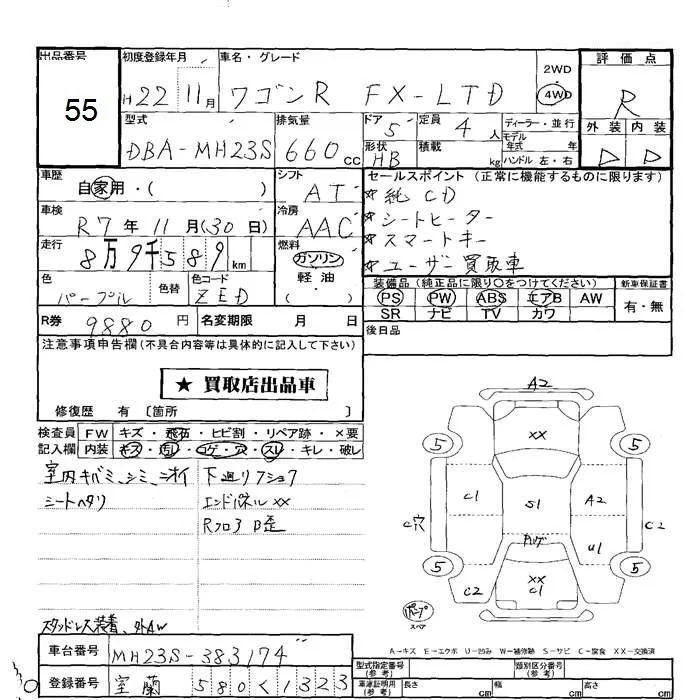 出品番号
55
初度登録年月
H22 11月
車名・グレード
ワゴンR FX-LTD
2WD
4WD
評価点
R
外装 内装
D D
型式
DBA-MH23S
排気量
660cc
ドア
5
形状
HB
定員
4人
積載
kg
ディーラー・並行
モデル年式 年
ハンドル 左・右
車歴
自家用・( )
シフト
AT
車検
R7年11月(30日)
冷房
AAC
走行
8万9千589km
燃料
ガソリン
軽・油
( )
色
パープル
色替
色コード
ZED
セールスポイント (正常に機能するものに限ります)
☆純CD
☆シートヒーター
☆スマートキー
☆ユーザー買取車
装備品(純正品に限り○をつけてください)
PS PW ABS エアB AW
SR ナビ TV カワ
新車保証書
有・無
後日品
R券 9880円
名変期限 月 日
注意事項申告欄(不具合内容等は具体的に記入して下さい)
★ 買取店出品車
修復歴 有 〔箇所 〕
検査員記入欄
FW キズ・飛石・ヒビ割・リペア跡・×要
内装 キズ・汚レ・コゲ・穴・スレ・キレ・破レ
室内キバミ、シミ、ニオイ
シートヘタリ
下廻リフショク
エンドパネルxx
スタッドレス装着、外AW
A2
xx
5 5
C1 S1 A2
C穴 C2
U1
5 5
C2 xx C1
スペア
A-キズ E-エクボ U-凹み W-補修跡 S-サビ C-腐食 XX-交換済
車台番号 MH23S-383174
登録番号 室蘭 580 く 1323
型式指定番号(参考)
類別区分番号(参考)
車庫証明用(参考) 長さ cm 幅 cm 高さ cm